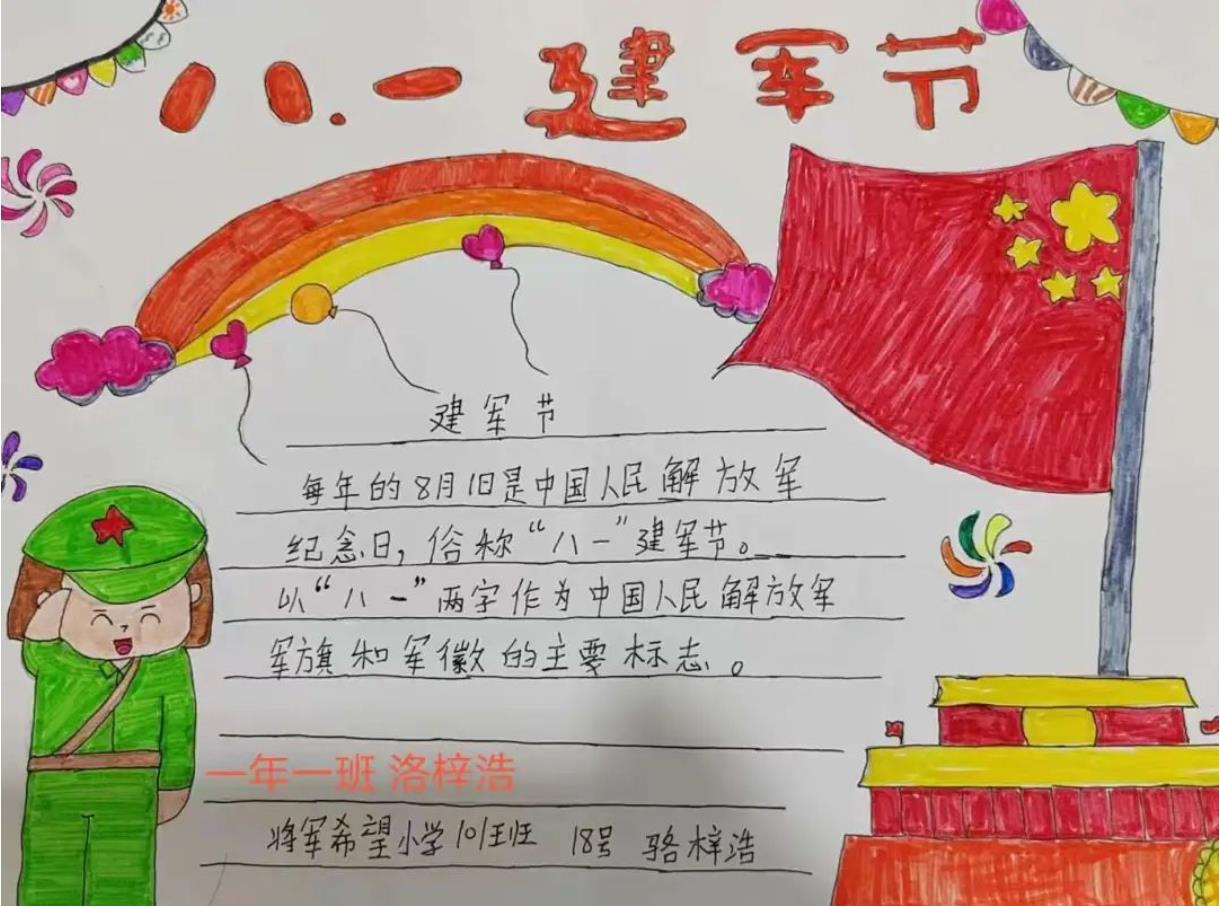 八.一建军节
建军节
每年的8月1日是中国人民解放军
纪念日，俗称“八一”建军节。
以“八一”两字作为中国人民解放军
军旗和军徽的主要标志。
一年一班 洛梓浩
将军希望小学101班 18号 骆梓浩